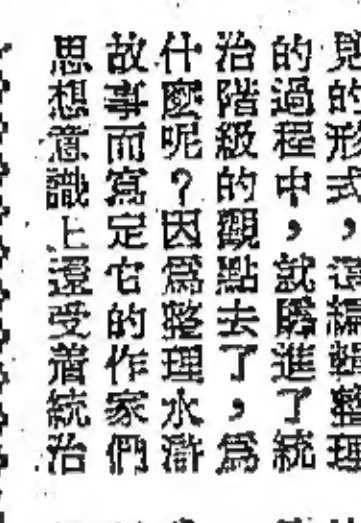 的形式，這編輯整理
的過程中，就隨進了統
治階級的觀點去了，爲
什麼呢？因爲整理水滸
故事而寫定它的作家們
思想意識上還受着統治